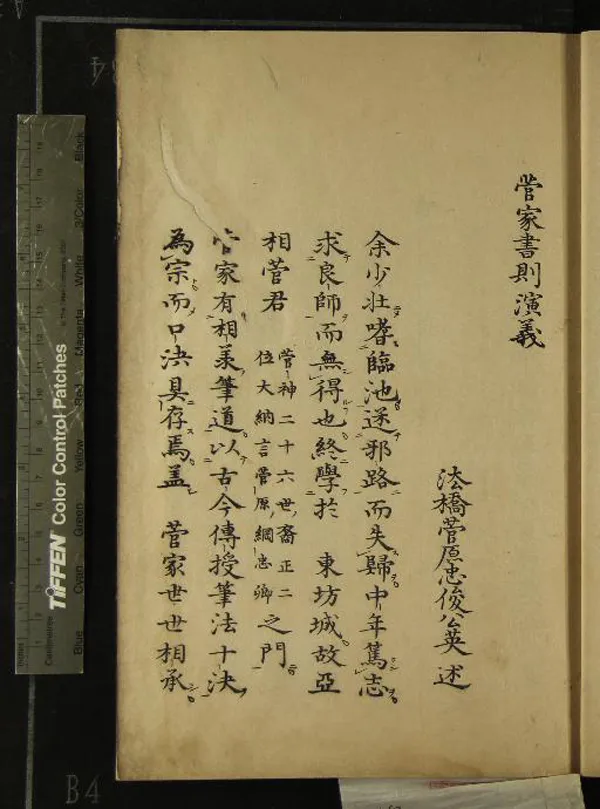 菅家書則演義
法橋菅原忠俊公英述
余少壮嗜臨池迷邪路而失歸中年篤志
求良師而無得也終學於 東坊城故亞
相菅君 菅神二十六世裔正二
位大納言菅原綱忠卿 之門
菅家有相承筆道以古今傳授筆法十决
為宗而口决具存焉盖 菅家世世相承
TIFFEN Color Control Patches
Blue
Cyan
Green
Yellow
Red
Magenta
White
3/Color
Black
Centimetres
Inches
B4